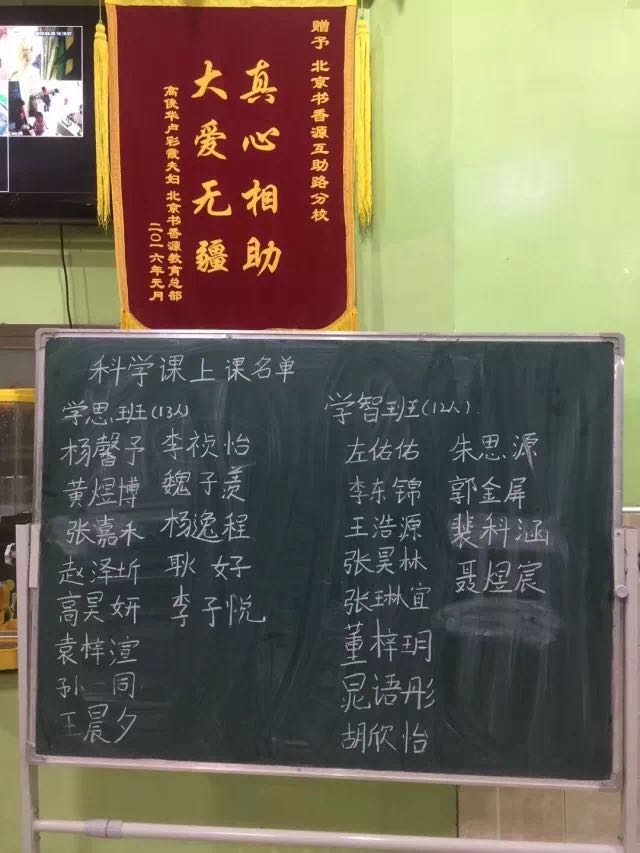 赠予 北京书香源互助路分校
真心相助
大爱无疆
高俊华卢彩霞夫妇 北京书香源教育总部
二〇一六年元月
科学课上课名单
学思班(13人)
杨馨予 李祯怡
黄煜博 魏子羡
张嘉禾 杨逸程
赵泽圻 耿 好
高昊妍 李子悦
袁梓渲
孙 同
王晨夕
学智班(12人)
左佑佑 朱思源
李东锦 郭金屏
王浩源 裴科涵
张昊林 聂煜宸
张琳宜
董梓玥
晁语彤
胡欣怡